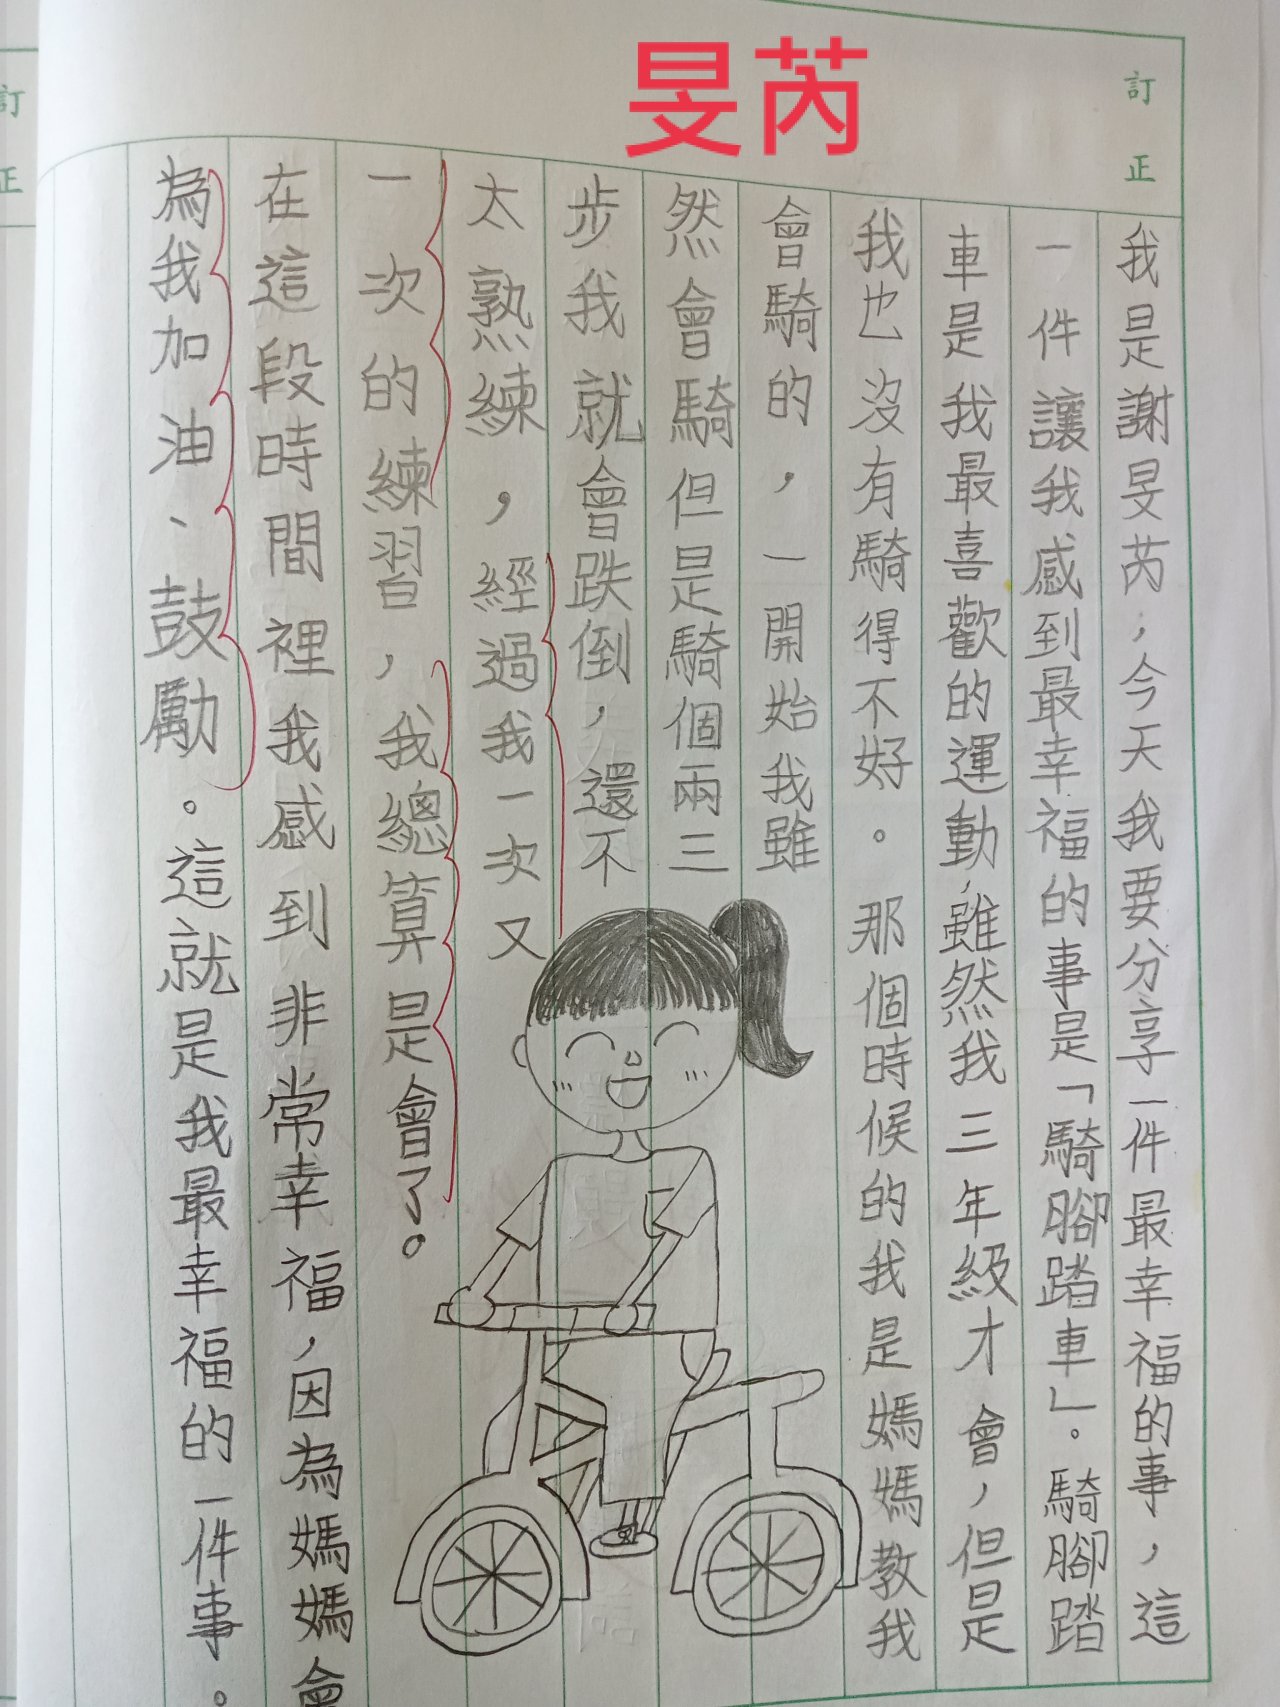 旻芮
訂正
訂正
我是謝旻芮，今天我要分享一件最幸福的事，這
一件讓我感到最幸福的事是「騎腳踏車」。騎腳踏
車是我最喜歡的運動，雖然我三年級才會，但是
我也沒有騎得不好。那個時候的我是媽媽教我
會騎的，一開始我雖
然會騎但是騎個兩三
步我就會跌倒，還不
太熟練，經過我一次又
一次的練習，我總算是會了。
在這段時間裡我感到非常幸福，因為媽媽會
為我加油、鼓勵。這就是我最幸福的一件事。